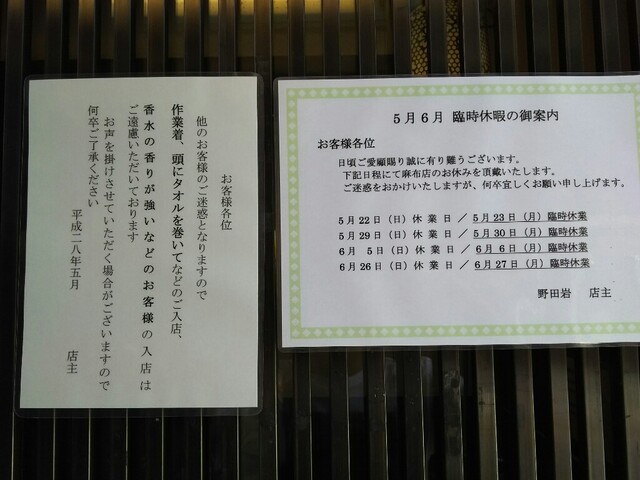 お客様各位
他のお客様のご迷惑となりますので
作業着、頭にタオルを巻いてなどのご入店、
香水の香りが強いなどのお客様の入店は
ご遠慮いただいております
お声を掛けさせていただく場合がございますので
何卒ご了承ください
平成二八年五月
店主
5月6月 臨時休暇の御案内
お客様各位
日頃ご愛顧賜り誠に有り難うございます。
下記日程にて麻布店のお休みを頂戴いたします。
ご迷惑をおかけいたしますが、何卒宜しくお願い申し上げます。
5月22日(日)休業日/5月23日(月)臨時休業
5月29日(日)休業日/5月30日(月)臨時休業
6月 5日(日)休業日/6月6日(月)臨時休業
6月26日(日)休業日/6月27日(月)臨時休業
野田岩 店主